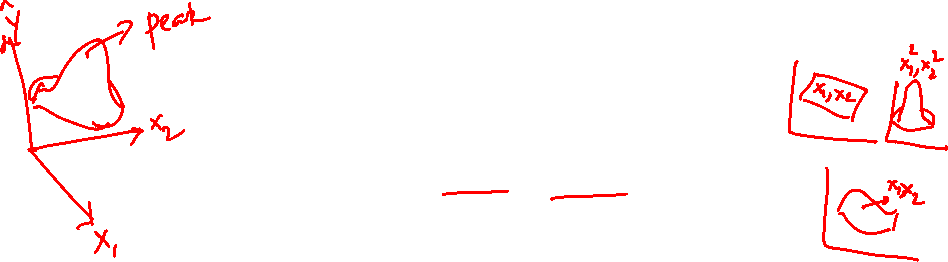 ŷ
peak
x₂
x₁
x₁, x₂
x₁², x₂²
x₁x₂